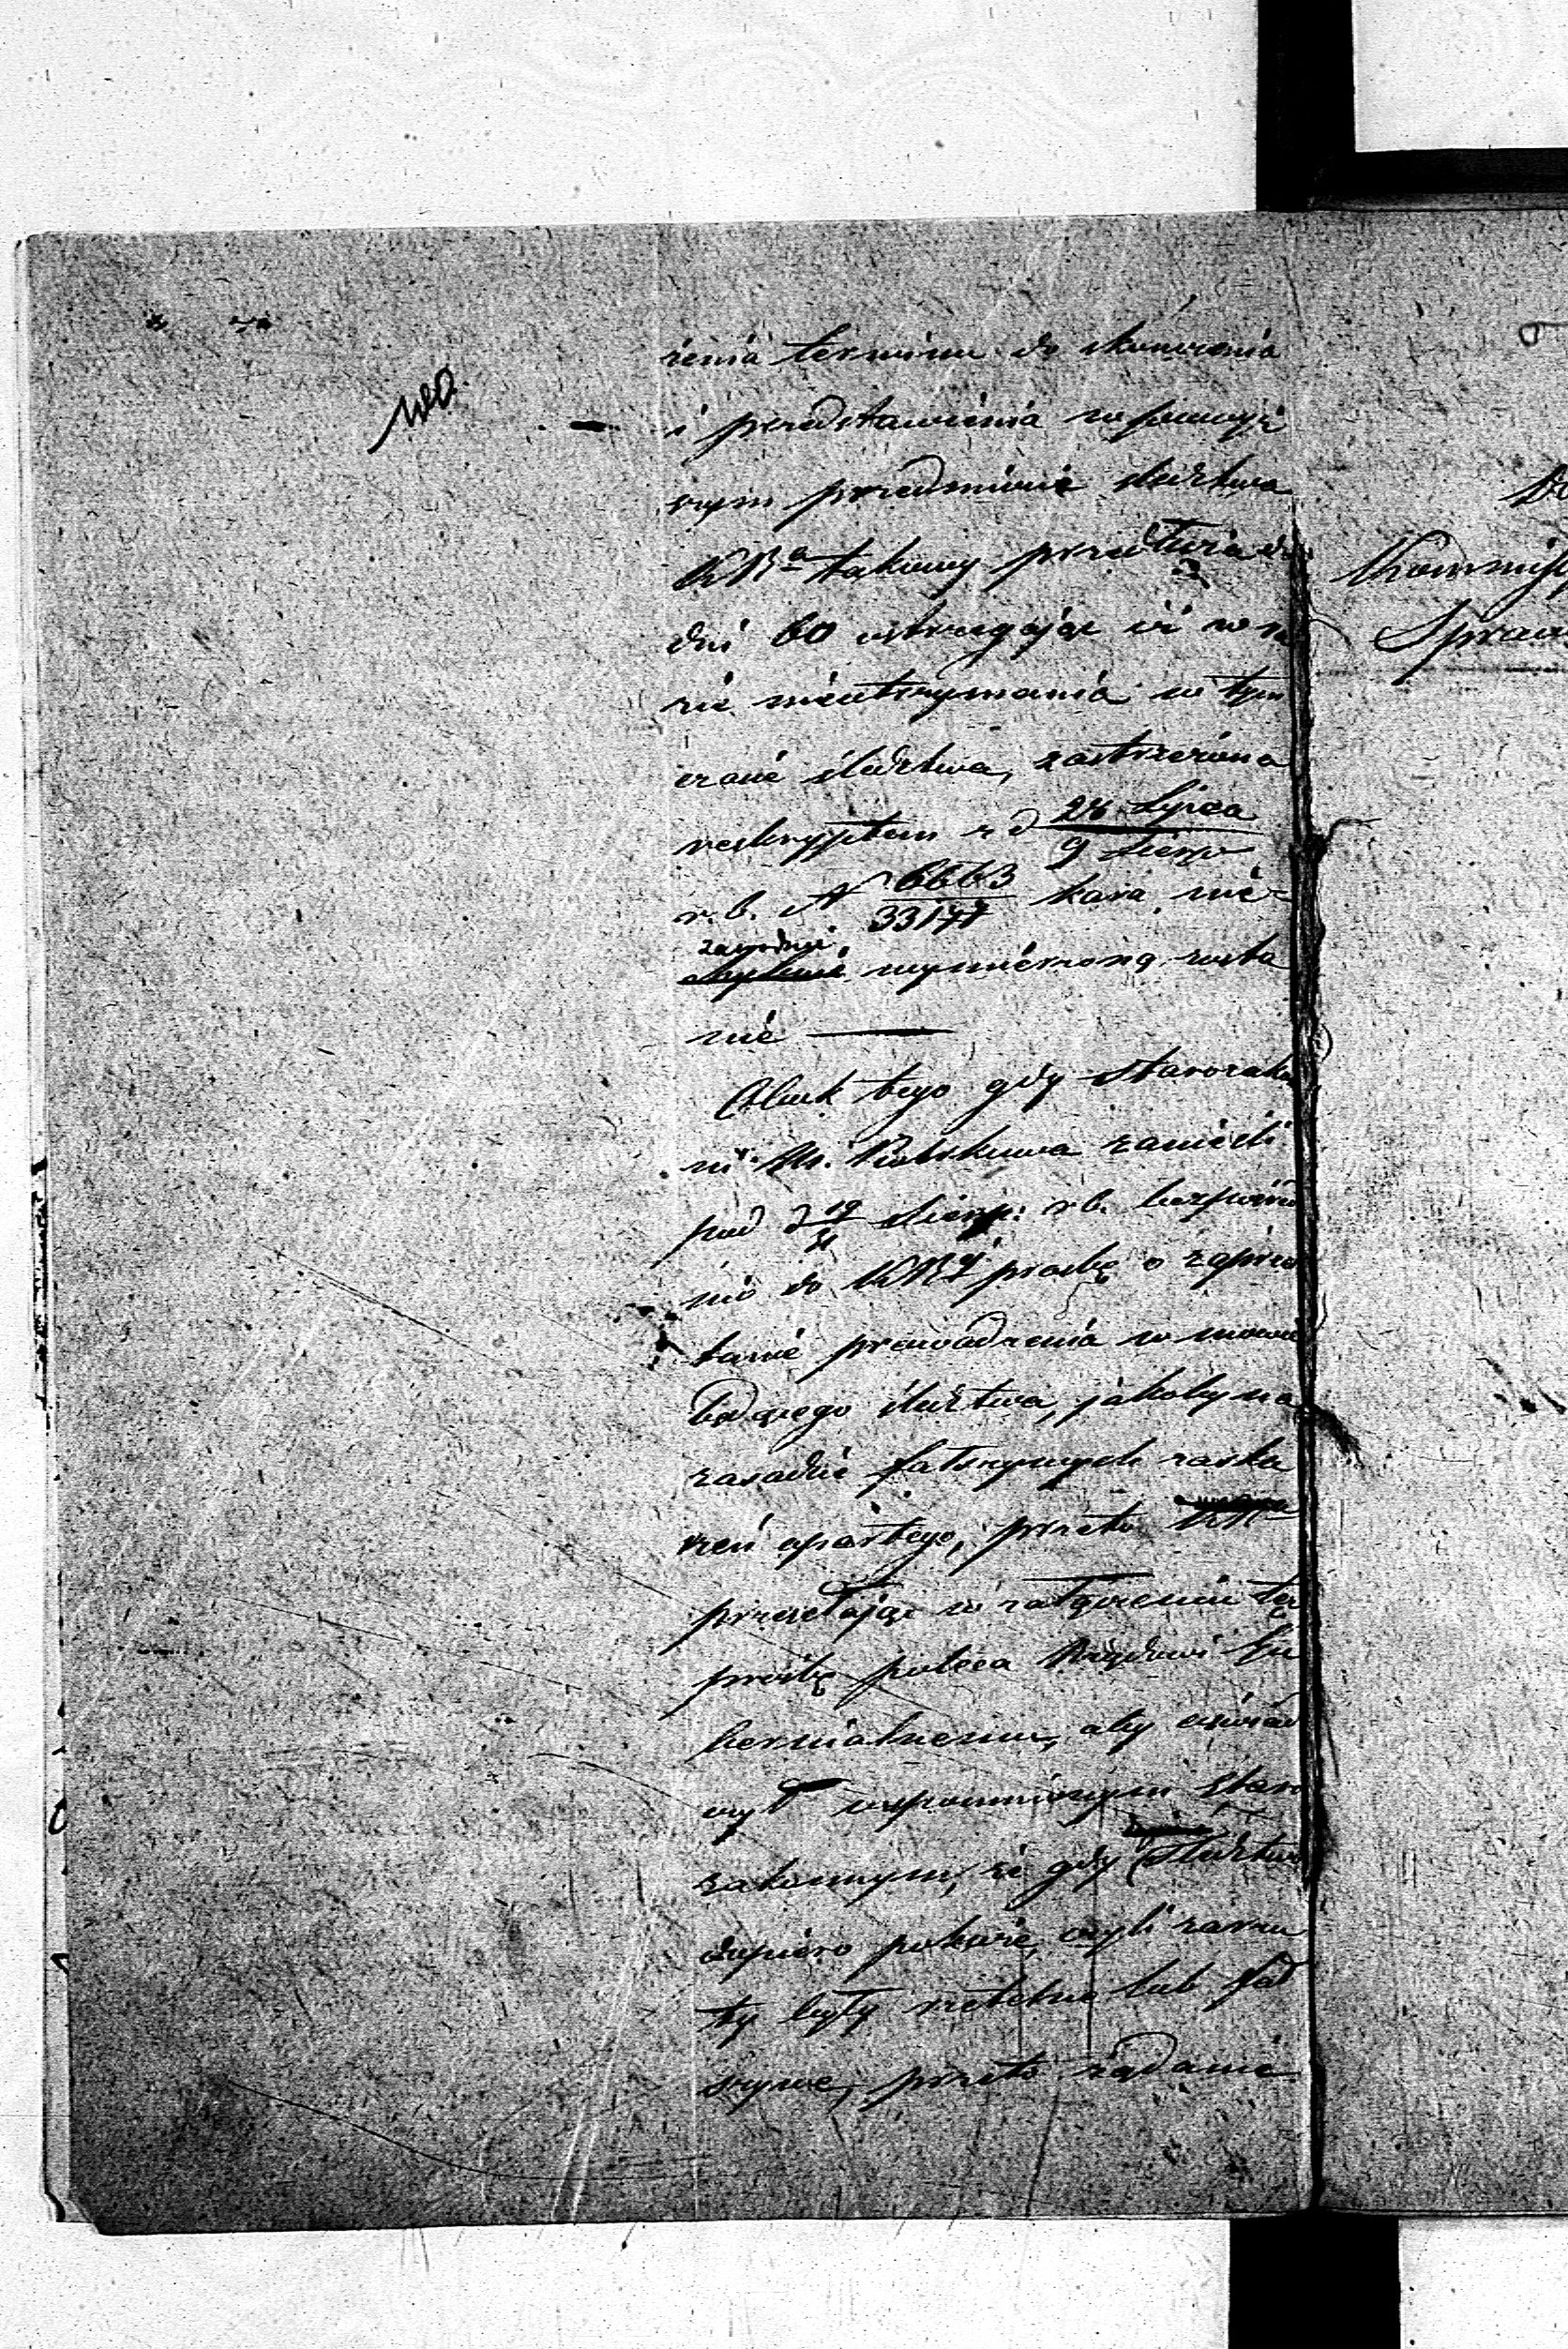 żenia terminu do skończenia
i przedstawienia w powyż
szym przedmiocie śledztwa
KRa takowy przedłuża do
dni 60 ostrzegając iż w ra
zie nieotrzymania w tym
czasie śledztwa, zastrzeżona
reskryptem z d 28 Lipca / 9 Sierp
r. b. N 6663 / 33177 kara nie-
zawodnie wymierzoną zosta
nie —
Obok tego gdy starozako
ni M. Piotrkowa zanieśli
pod d 19 / 31 Sierp: r b. bezpośre
nio do KRy prośbę o zaprze
stanie prowadzenia w mowie
będącego śledztwa, jakoby na
zasadzie fałszywych zaska
rżeń opartego, przeto KRa
przesyłając w załączeniu tę
prośbę poleca Rządowi Gu
bernialnemu, aby oświad
czył wspomnionym staro
zakonnym, że gdy śledztwo
dopiero pokaże, czyli zarzu
ty były rzetelne lub fał
szywe, przeto żądanie
Kommiss
Spraw